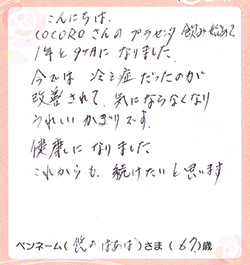 こんにちは.
COCOROさんのプラセンタ飲み始めて
1年と9ヶ月になりました.
今では 冷え症だったのが
改善されて、気にならなくなり
うれしいかぎりです.
健康になりました
これからも、続けたいと思います
ペンネーム(悠のはあば)さま(67)歳